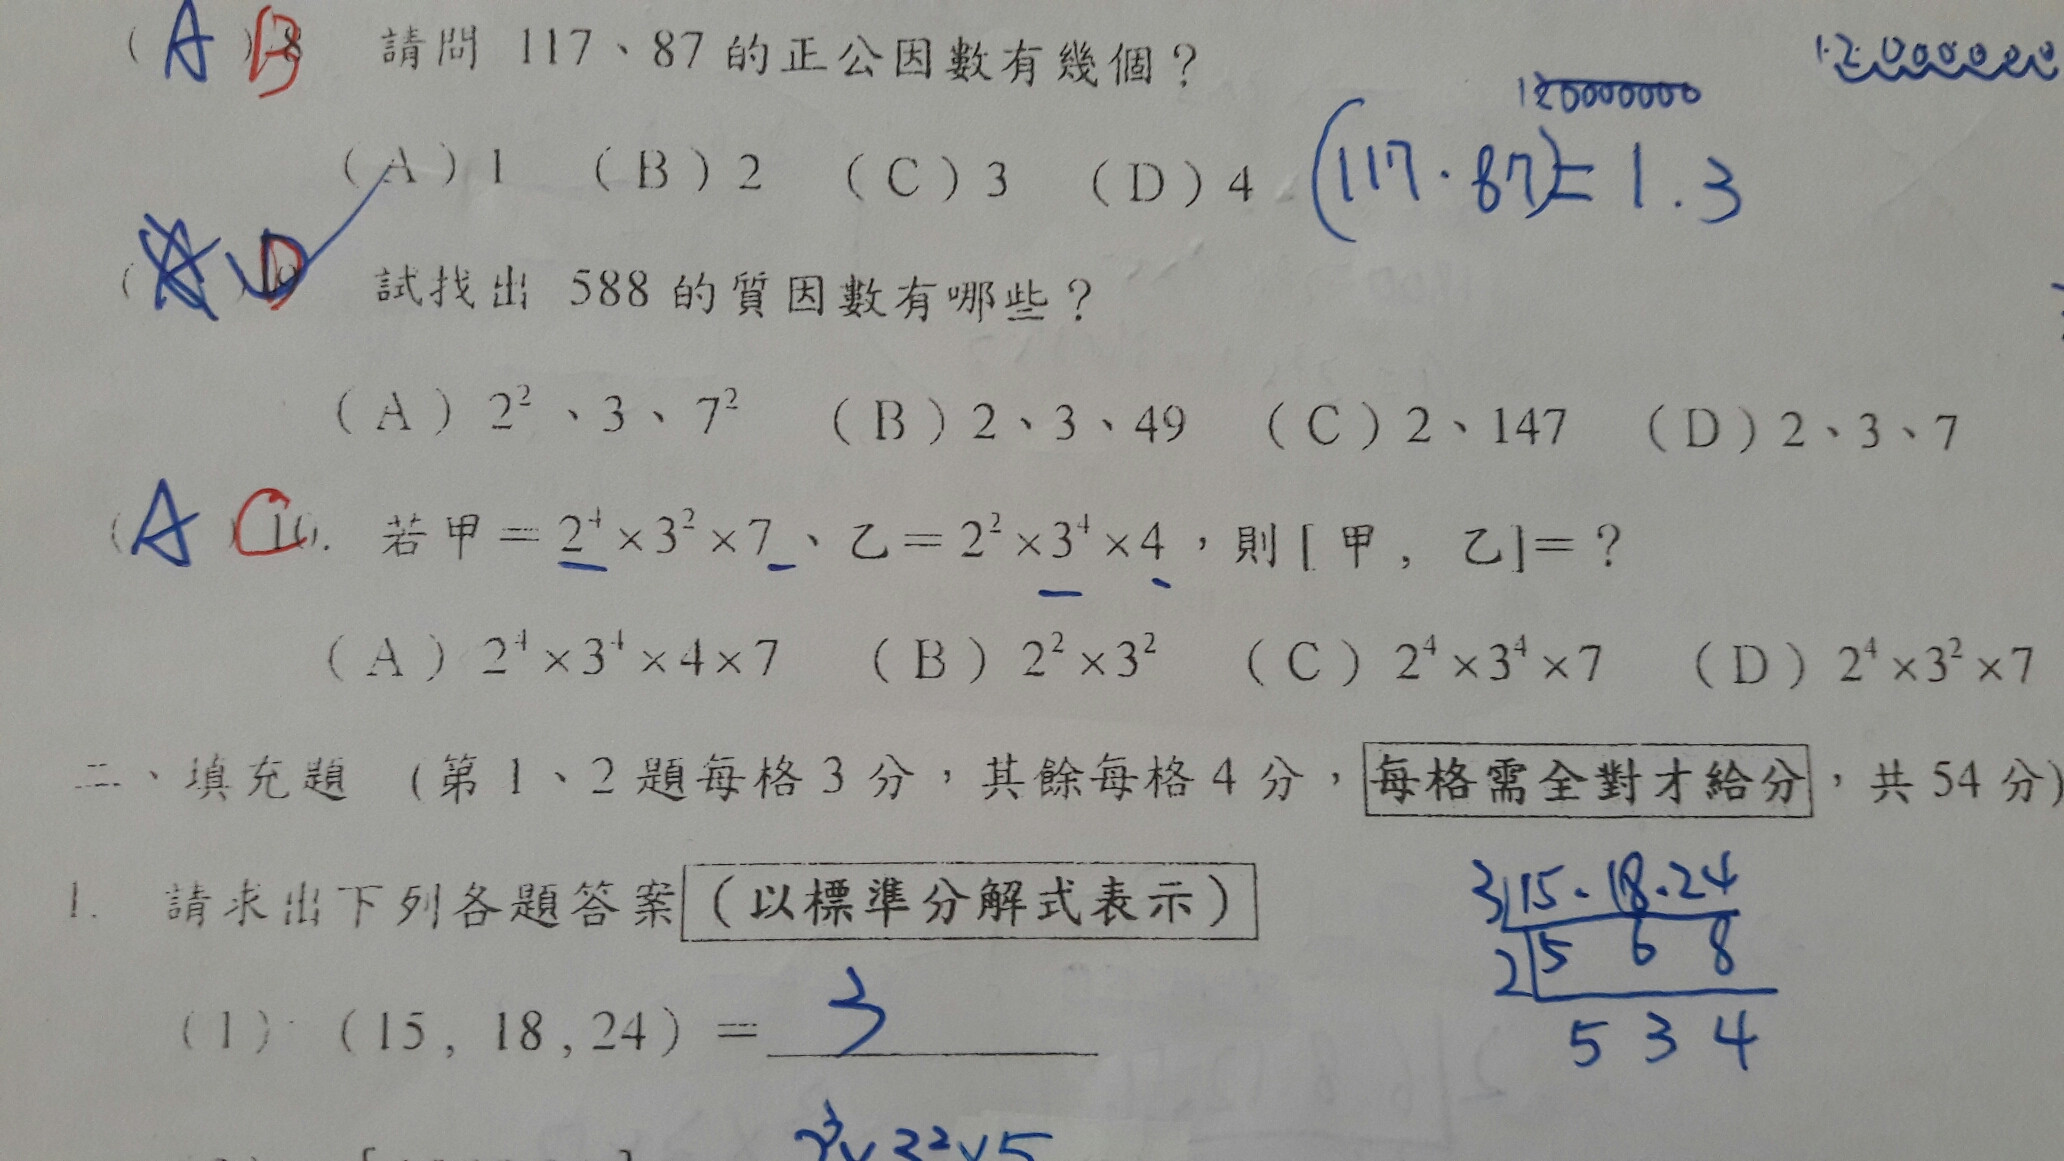 ( A B )8 請問 117、87的正公因數有幾個？
120000000
(A)1 (B)2 (C)3 (D)4 (117．87)=1．3
( D )9 試找出 588的質因數有哪些？
(A) 2²、3、7² (B)2、3、49 (C)2、147 (D)2、3、7
( A C )10. 若甲＝2⁴×3²×7、乙＝2²×3⁴×4，則[甲，乙]＝？
(A) 2⁴×3⁴×4×7 (B) 2²×3² (C) 2⁴×3⁴×7 (D) 2⁴×3²×7
二、填充題 (第1、2題每格3分，其餘每格4分，每格需全對才給分，共54分)
1. 請求出下列各題答案(以標準分解式表示)
3 15．18．24
2 5 6 8
5 3 4
(1) (15, 18, 24) ＝ 3
2³×3²×5